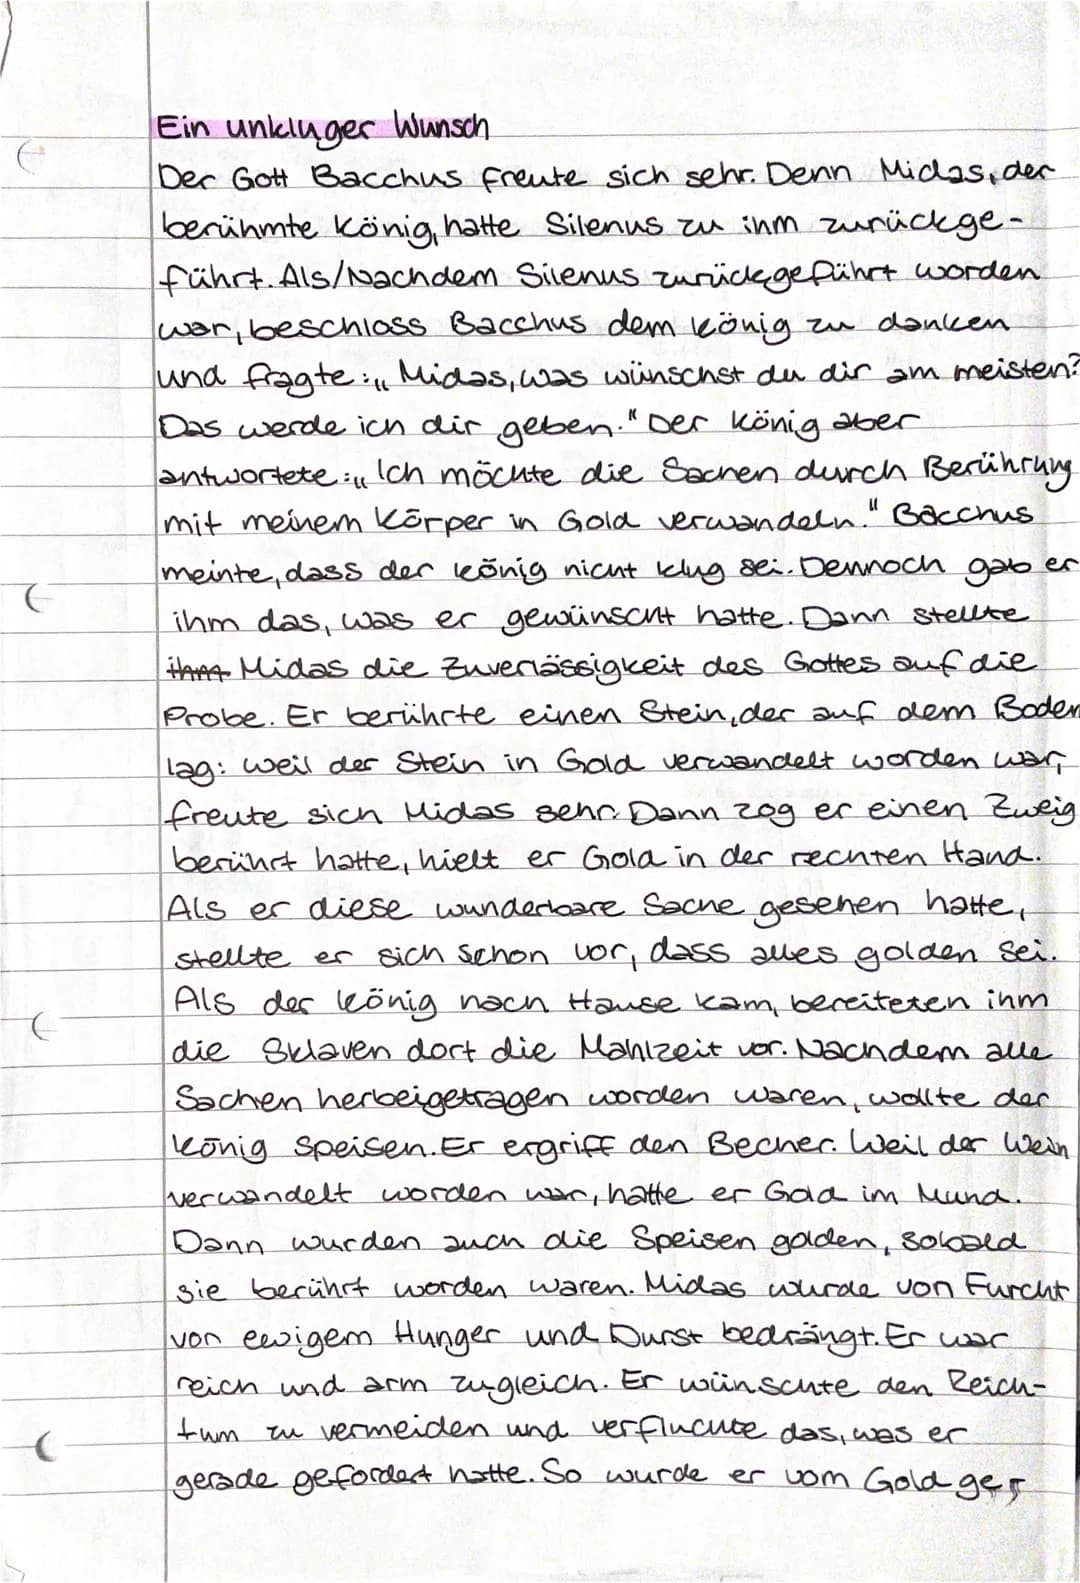 Ein unkluger Wunsch
Der Gott Bacchus freute sich sehr. Denn Midas, der
berühmte König, hatte Silenus zu ihm zurückge-
führt. Als/Nachdem Silenus zurückgeführt worden
war, beschloss Bacchus dem König zu danken
und fragte: „Midas, was wünschst du dir am meisten?
Das werde ich dir geben." Der König aber
antwortete: „Ich möchte die Sachen durch Berührung
mit meinem Körper in Gold verwandeln." Bacchus
meinte, dass der König nicht klug sei. Dennoch gab er
ihm das, was er gewünscht hatte. Dann stellte
ihm Midas die Zuverlässigkeit des Gottes auf die
Probe. Er berührte einen Stein, der auf dem Boden
lag: weil der Stein in Gold verwandelt worden war,
freute sich Midas sehr. Dann zog er einen Zweig
berührt hatte, hielt er Gold in der rechten Hand.
Als er diese wunderbare Sache gesehen hatte,
stellte er sich schon vor, dass alles golden sei.
Als der König nach Hause kam, bereiteten ihm
die Sklaven dort die Mahlzeit vor. Nachdem alle
Sachen herbeigetragen worden waren, wollte der
König speisen. Er ergriff den Becher. Weil der Wein
verwandelt worden war, hatte er Gold im Mund.
Dann wurden auch die Speisen golden, sobald
sie berührt worden waren. Midas wurde von Furcht
von ewigem Hunger und Durst bedrängt. Er war
reich und arm zugleich. Er wünschte den Reich-
tum zu vermeiden und verfluchte das, was er
gerade gefordert hatte. So wurde er vom Gold ge-